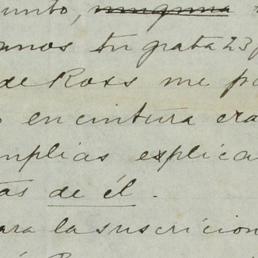 unto, ninguna
anos tu grata 23
de Ross me p
en cintura cra
mplias explica
tas de él.
ara la suscricion